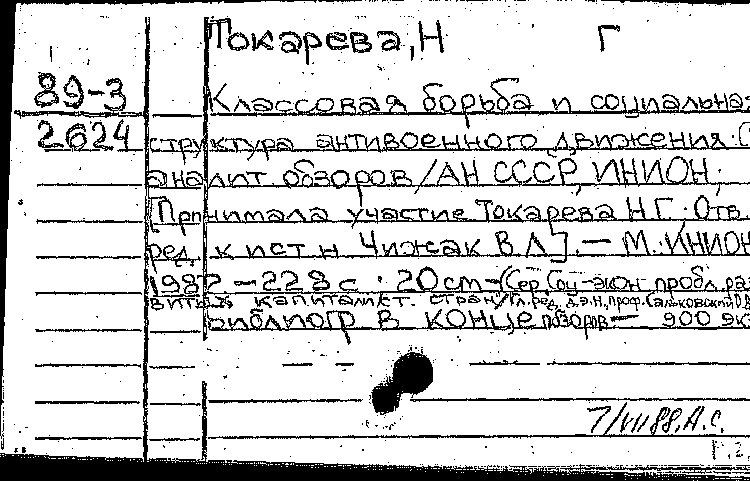 Токарева, Н Г
89-3
Классовая борьба и социальная
2624
структура антивоенного движения. (
аналит обзоров / АН СССР, ИНИОН;
[Принимала участие Токарева Н Г. Отв
ред. к ист н Чижак В Л]. — М. ИНИОН
1987 — 228 с. 20 см — (Сер Соц-экон пробл раз
вития капиталист. стран / Гл. ред. д.э.н, проф.
библиогр в конце обзоров — 900 эк
7/VII 88, А.С.